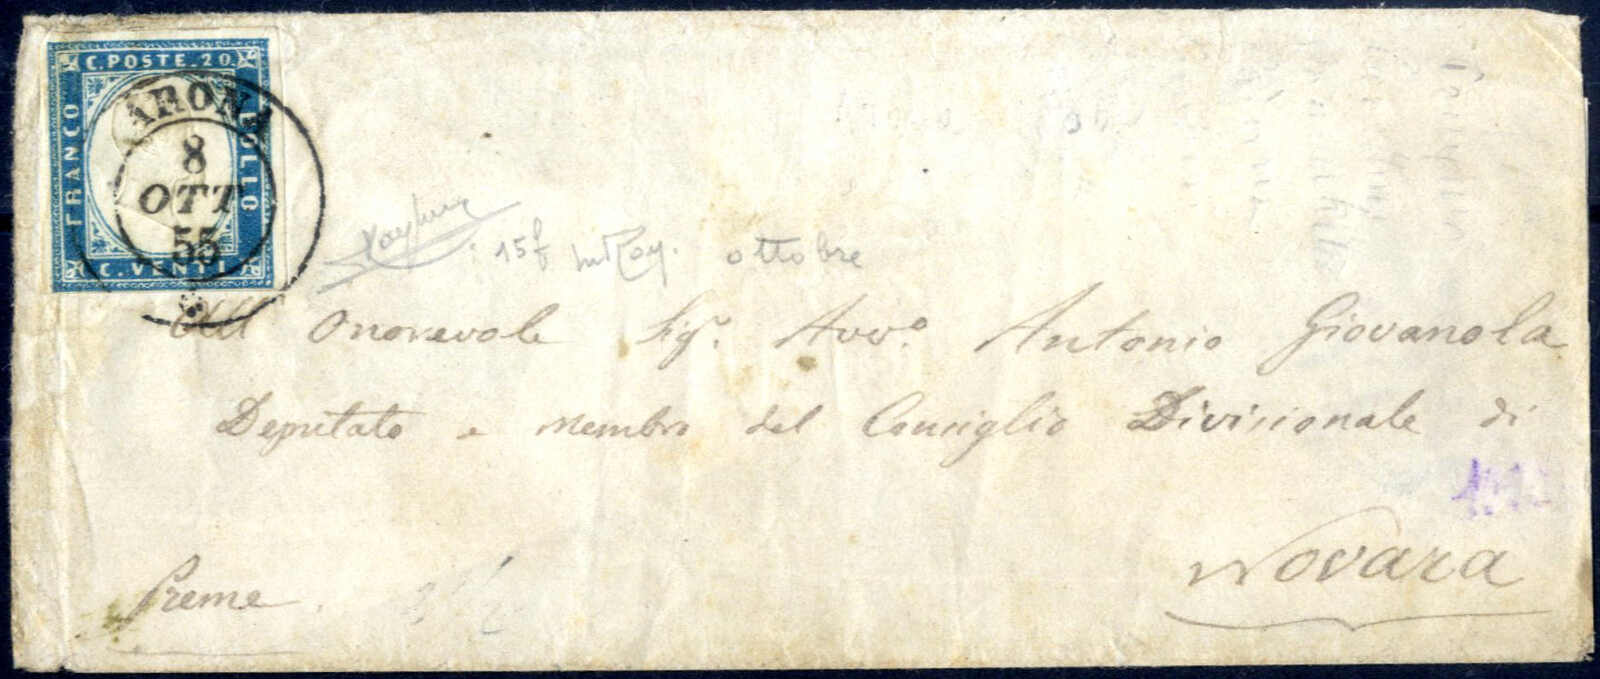 C. POSTE. 20.
FRANCO
BOLLO
C. VENTI
ARONA
8
OTT
55
15f ottobre
All Onorevole Sigr. Avvo. Antonio Giovanola
Deputato e membro del Consiglio Divisionale di
Novara
Preme.